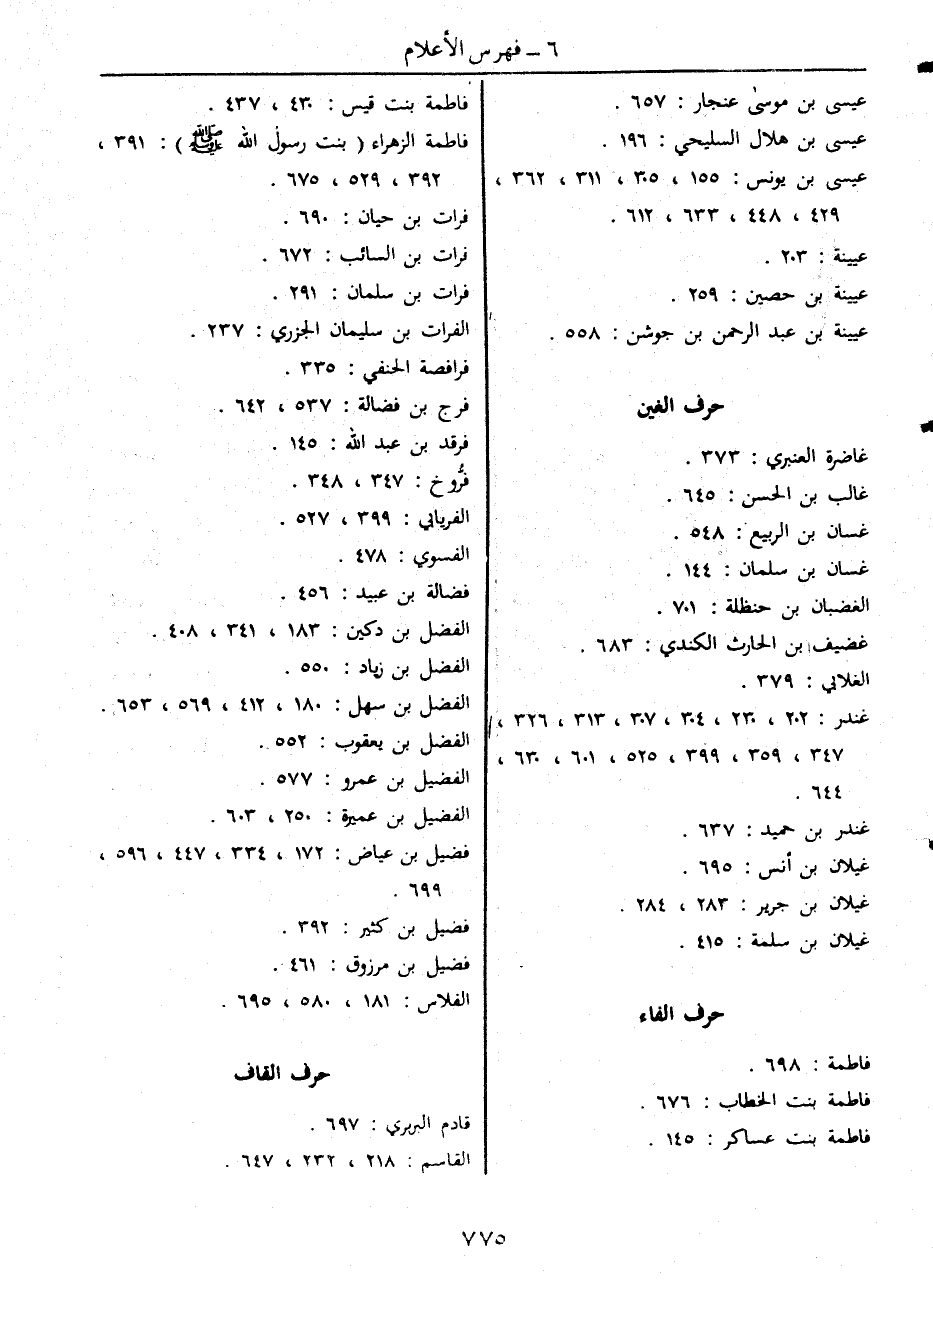 ٦ ــ فهرس الأعلام
عيسى بن موسىٰ عنجار : ٦٥٧ .
عيسى بن هلال السليحي : ١٩٦ .
عيسى بن يونس : ١٥٥ ، ٣٠٥ ، ٣١١ ، ٣٦٢ ،
٤٢٩ ، ٤٤٨ ، ٦٣٣ ، ٦١٢ .
عيينة : ٢٠٣ .
عيينة بن حصين : ٢٥٩ .
عيينة بن عبد الرحمن بن جوشن : ٥٥٨ .
حرف الغين
غاضرة العنبري : ٣٧٣ .
غالب بن الحسن : ٦٤٥ .
غسان بن الربيع : ٥٤٨ .
غسان بن سلمان : ١٤٤ .
الغضبان بن حنظلة : ٧٠١ .
غضيف بن الحارث الكندي : ٦٨٣ .
الغلابي : ٣٧٩ .
غندر : ٢٠٢ ، ٢٣٠ ، ٣٠٤ ، ٣٠٧ ، ٣١٣ ، ٣٢٦ ،
٣٤٧ ، ٣٥٩ ، ٣٩٩ ، ٥٢٥ ، ٦٠١ ، ٦٣٠ ،
٦٤٤ .
غندر بن حميد : ٦٣٧ .
غيلان بن أنس : ٦٩٥ .
غيلان بن جرير : ٢٨٣ ، ٢٨٤ .
غيلان بن سلمة : ٤١٥ .
حرف الفاء
فاطمة : ٦٩٨ .
فاطمة بنت الخطاب : ٦٧٦ .
فاطمة بنت عساكر : ١٤٥ .
فاطمة بنت قيس : ٤٣٠ ، ٤٣٧ .
فاطمة الزهراء ( بنت رسول الله ﷺ ) : ٣٩١ ،
٣٩٢ ، ٥٢٩ ، ٦٧٥ .
فرات بن حيان : ٦٩٠ .
فرات بن السائب : ٦٧٢ .
فرات بن سلمان : ٢٩١ .
الفرات بن سليمان الجزري : ٢٣٧ .
فرافصة الحنفي : ٣٣٥ .
فرج بن فضالة : ٥٣٧ ، ٦٤٢ .
فرقد بن عبد الله : ١٤٥ .
فرُّوخ : ٣٤٧ ، ٣٤٨ .
الفريابي : ٣٩٩ ، ٥٢٧ .
الفسوي : ٤٧٨ .
فضالة بن عبيد : ٤٥٦ .
الفضل بن دكين : ١٨٣ ، ٣٤١ ، ٤٠٨ .
الفضل بن زياد : ٥٥٠ .
الفضل بن سهل : ١٨٠ ، ٤١٢ ، ٥٦٩ ، ٦٥٣ .
الفضل بن يعقوب : ٥٥٢ .
الفضيل بن عمرو : ٥٧٧ .
الفضيل بن عميرة : ٢٥٠ ، ٦٠٣ .
فضيل بن عياض : ١٧٢ ، ٣٣٤ ، ٤٤٧ ، ٥٩٦ ،
٦٩٩ .
فضيل بن كثير : ٣٩٢ .
فضيل بن مرزوق : ٤٦١ .
الفلاس : ١٨١ ، ٥٨٠ ، ٦٩٥ .
حرف القاف
قادم البربري : ٦٩٧ .
القاسم : ٢١٨ ، ٢٣٢ ، ٦٤٧ .
٧٧٥